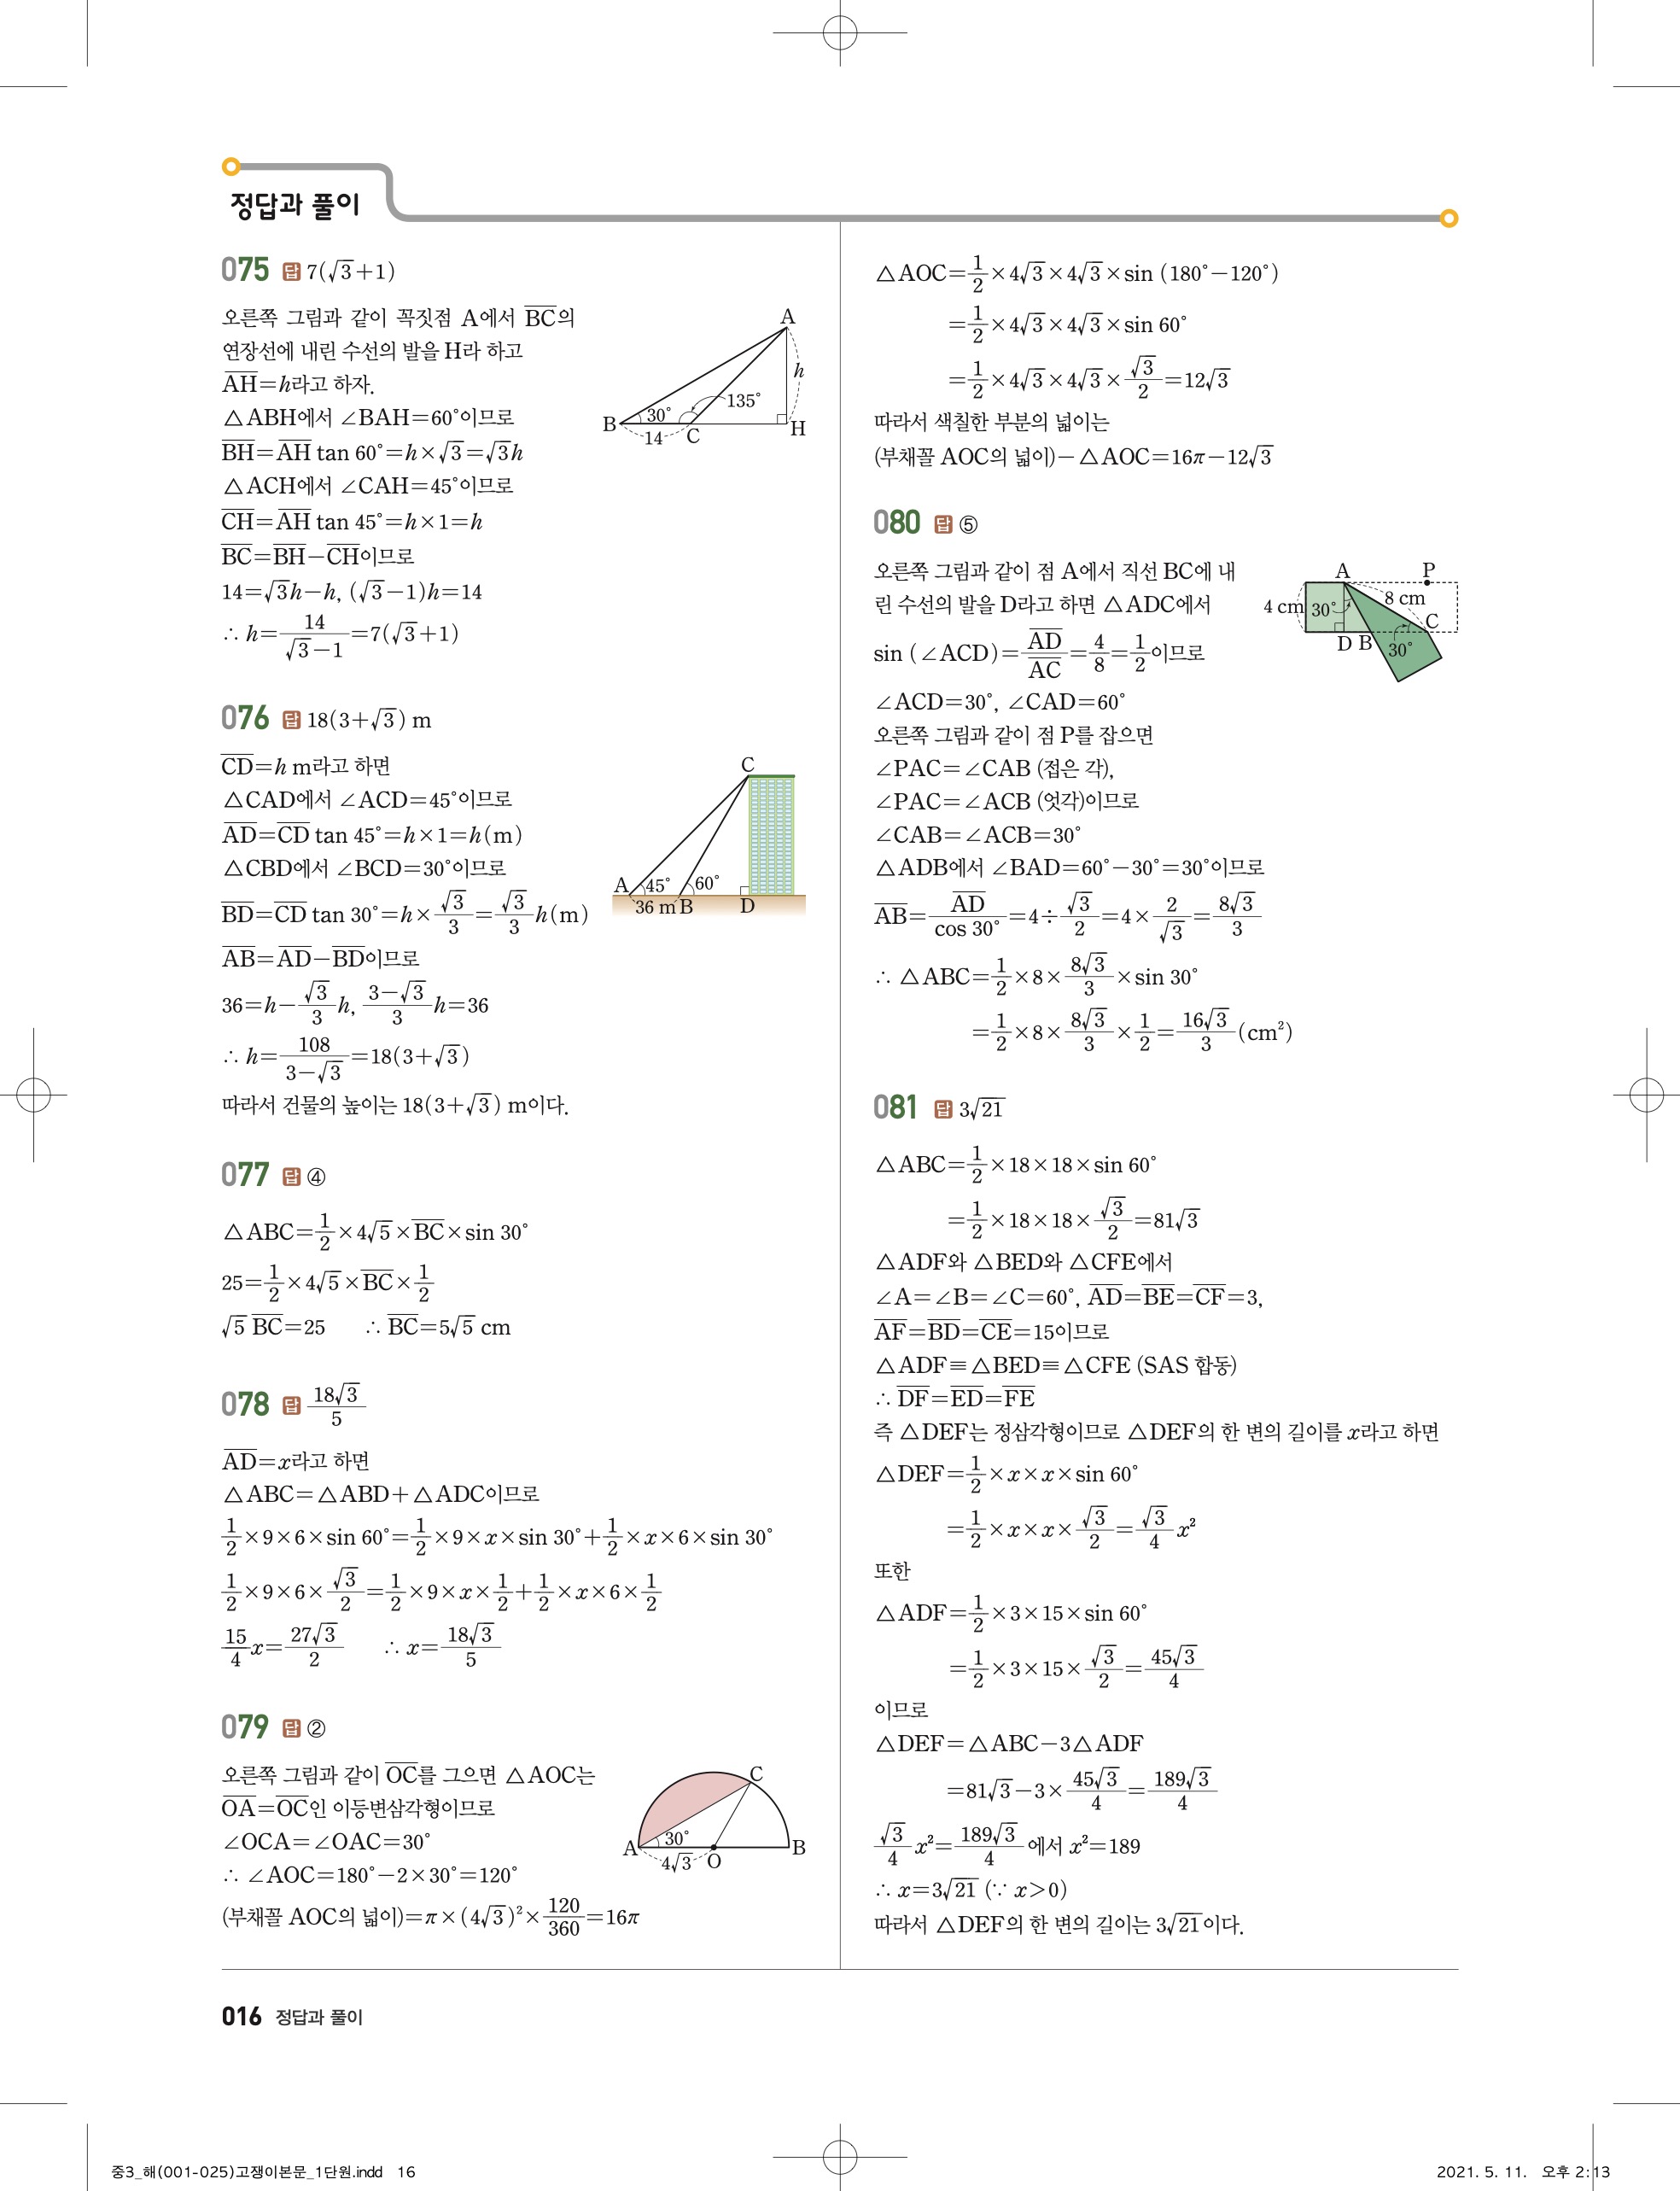 정답과 풀이
075 답 7(√3+1)
오른쪽 그림과 같이 꼭짓점 A에서 B̅C̅의
연장선에 내린 수선의 발을 H라 하고
A̅H̅=h라고 하자.
△ABH에서 ∠BAH=60°이므로
B̅H̅=A̅H̅ tan 60°=h×√3=√3h
△ACH에서 ∠CAH=45°이므로
C̅H̅=A̅H̅ tan 45°=h×1=h
B̅C̅=B̅H̅-C̅H̅이므로
14=√3h-h, (√3-1)h=14
∴ h=14/(√3-1)=7(√3+1)
A
h
135°
30°
B
14
C
H
076 답 18(3+√3) m
C̅D̅=h m라고 하면
△CAD에서 ∠ACD=45°이므로
A̅D̅=C̅D̅ tan 45°=h×1=h(m)
△CBD에서 ∠BCD=30°이므로
B̅D̅=C̅D̅ tan 30°=h×√3/3=√3/3 h(m)
A̅B̅=A̅D̅-B̅D̅이므로
36=h-√3/3 h, (3-√3)/3 h=36
∴ h=108/(3-√3)=18(3+√3)
따라서 건물의 높이는 18(3+√3) m이다.
C
A 45° 60°
36 m B D
077 답 ④
△ABC=1/2×4√5×B̅C̅×sin 30°
25=1/2×4√5×B̅C̅×1/2
√5 B̅C̅=25 ∴ B̅C̅=5√5 cm
078 답 18√3/5
A̅D̅=x라고 하면
△ABC=△ABD+△ADC이므로
1/2×9×6×sin 60°=1/2×9×x×sin 30°+1/2×x×6×sin 30°
1/2×9×6×√3/2=1/2×9×x×1/2+1/2×x×6×1/2
15/4 x=27√3/2 ∴ x=18√3/5
079 답 ②
오른쪽 그림과 같이 O̅C̅를 그으면 △AOC는
O̅A̅=O̅C̅인 이등변삼각형이므로
∠OCA=∠OAC=30°
∴ ∠AOC=180°-2×30°=120°
(부채꼴 AOC의 넓이)=π×(4√3)²×120/360=16π
C
A 30° B
4√3 O
△AOC=1/2×4√3×4√3×sin (180°-120°)
=1/2×4√3×4√3×sin 60°
=1/2×4√3×4√3×√3/2=12√3
따라서 색칠한 부분의 넓이는
(부채꼴 AOC의 넓이)-△AOC=16π-12√3
080 답 ⑤
오른쪽 그림과 같이 점 A에서 직선 BC에 내
린 수선의 발을 D라고 하면 △ADC에서
sin (∠ACD)=A̅D̅/A̅C̅=4/8=1/2이므로
∠ACD=30°, ∠CAD=60°
오른쪽 그림과 같이 점 P를 잡으면
∠PAC=∠CAB (접은 각),
∠PAC=∠ACB (엇각)이므로
∠CAB=∠ACB=30°
△ADB에서 ∠BAD=60°-30°=30°이므로
A̅B̅=A̅D̅/cos 30°=4÷√3/2=4×2/√3=8√3/3
∴ △ABC=1/2×8×8√3/3×sin 30°
=1/2×8×8√3/3×1/2=16√3/3(cm²)
A P
4 cm 30° 8 cm
C
D B 30°
081 답 3√21
△ABC=1/2×18×18×sin 60°
=1/2×18×18×√3/2=81√3
△ADF와 △BED와 △CFE에서
∠A=∠B=∠C=60°, A̅D̅=B̅E̅=C̅F̅=3,
A̅F̅=B̅D̅=C̅E̅=15이므로
△ADF≡△BED≡△CFE (SAS 합동)
∴ D̅F̅=E̅D̅=F̅E̅
즉 △DEF는 정삼각형이므로 △DEF의 한 변의 길이를 x라고 하면
△DEF=1/2×x×x×sin 60°
=1/2×x×x×√3/2=√3/4 x²
또한
△ADF=1/2×3×15×sin 60°
=1/2×3×15×√3/2=45√3/4
이므로
△DEF=△ABC-3△ADF
=81√3-3×45√3/4=189√3/4
√3/4 x²=189√3/4에서 x²=189
∴ x=3√21 (∵ x>0)
따라서 △DEF의 한 변의 길이는 3√21이다.
016 정답과 풀이
중3_해(001-025)고쟁이본문_1단원.indd 16
2021. 5. 11. 오후 2:13